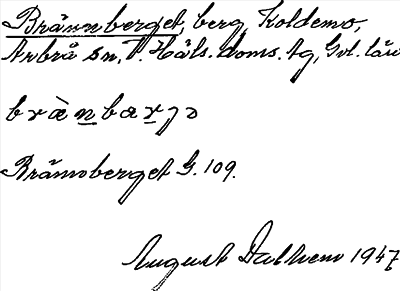 Brännberget, berg, Koldemo,
Arbrå sn, V. Häls. doms. tg, Gvl. län
brὰnbærjɔ
Brännberget G. 109.
August Dalhem 1947